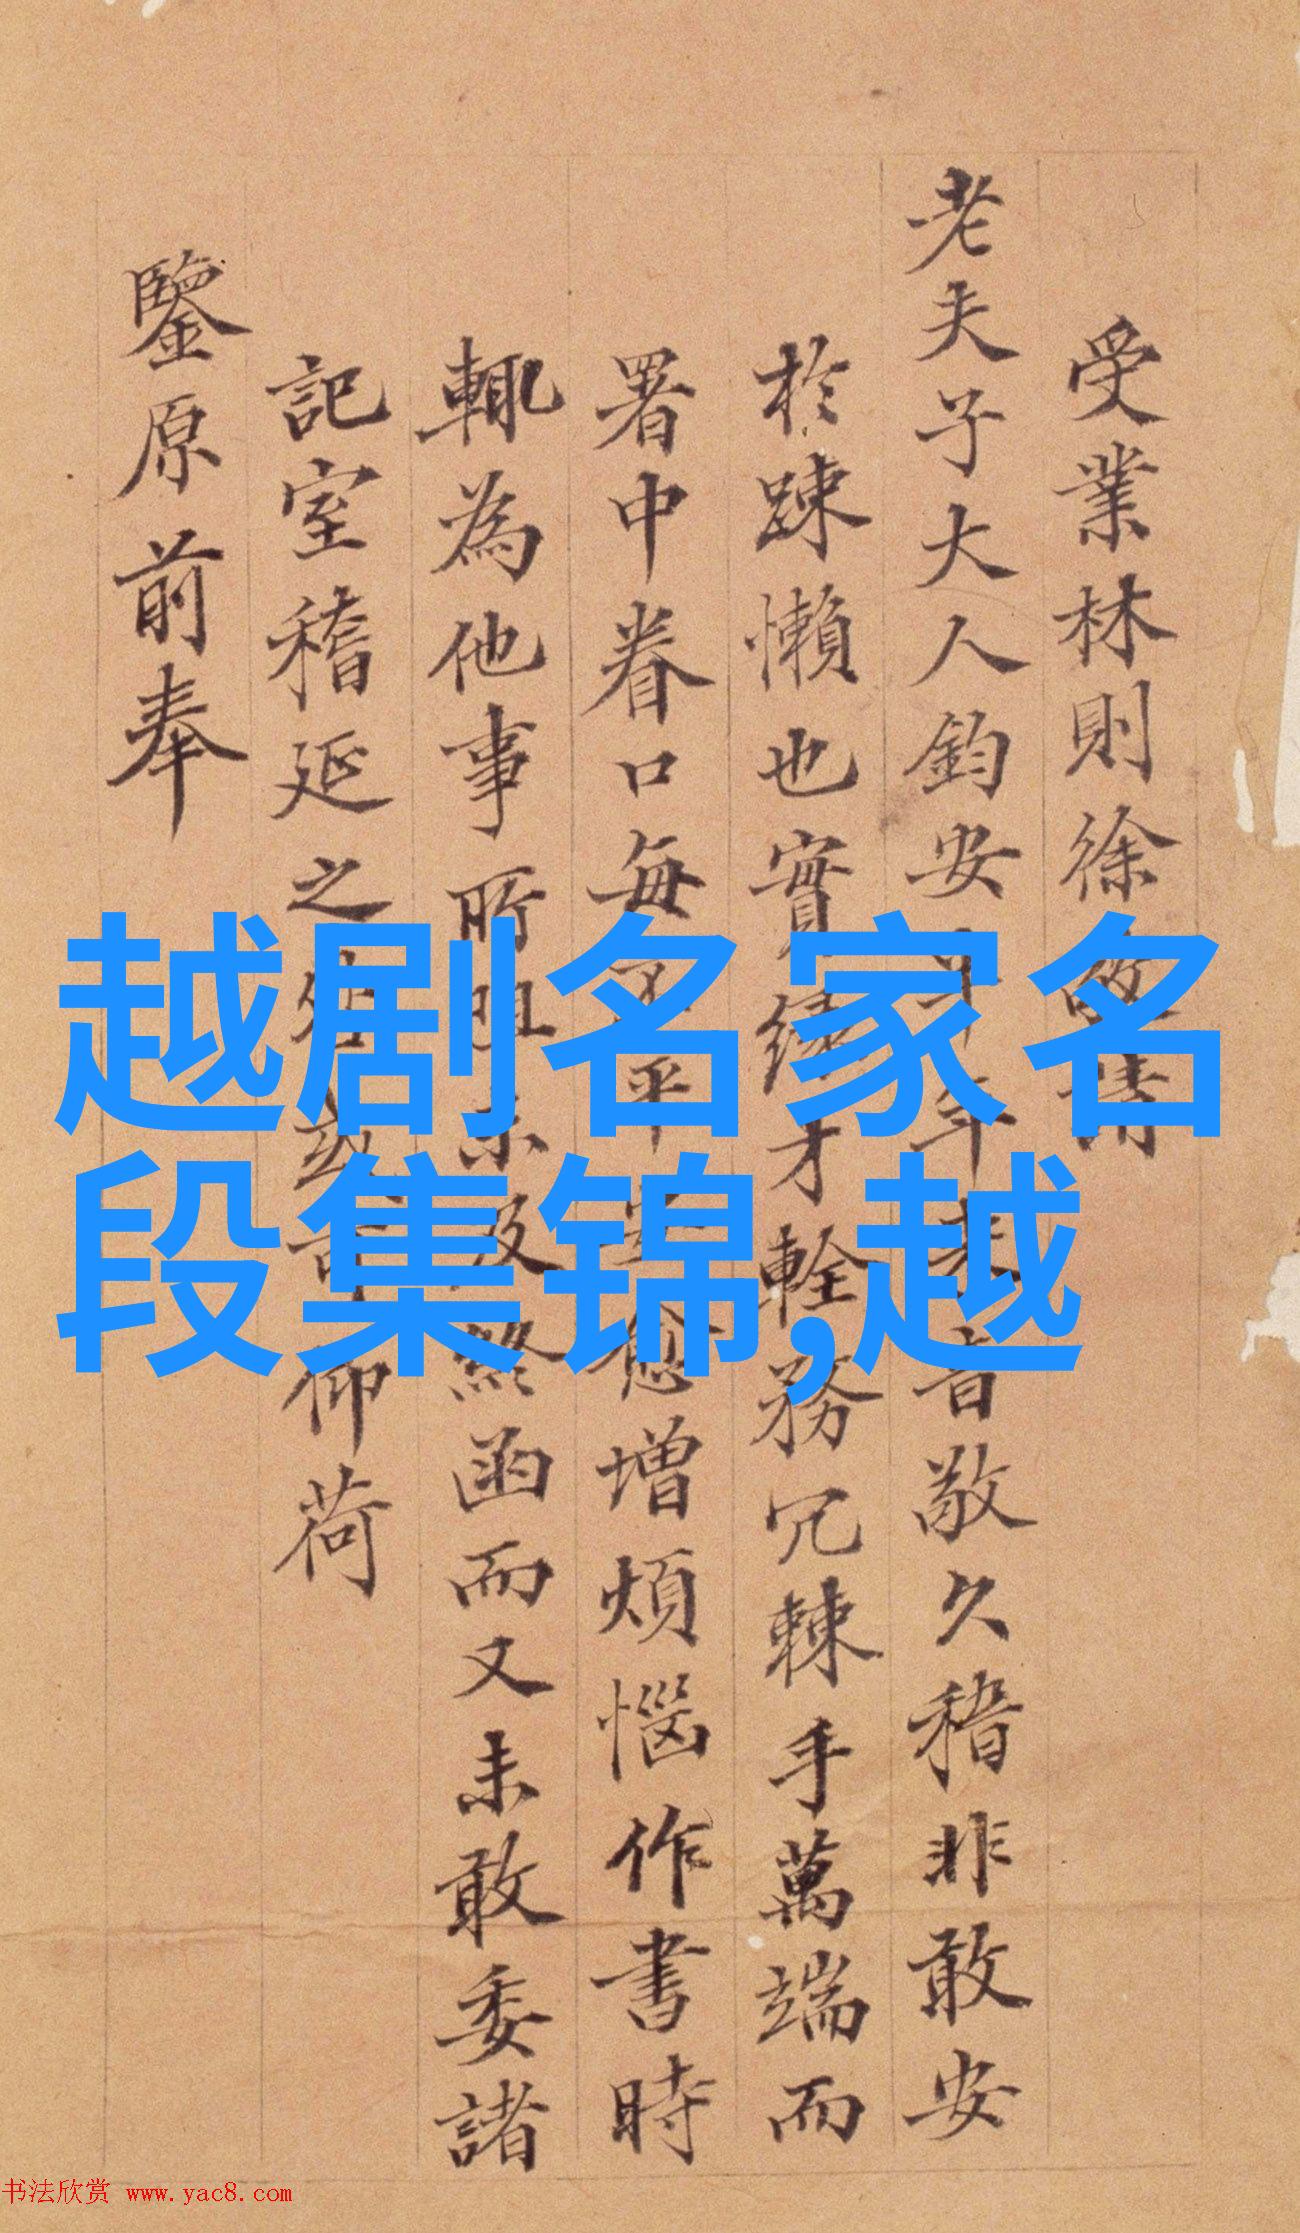 受業林則徐敬請
老夫子大人鈞安半年来音敬久稽非敢安
於踈懶也實緣才輇務冗棘手萬端而
署中眷口每不平安愈增煩惱作書時
輒為他事所阻未及終函而又未敢委諸
記室稽延之仰荷
鑒原前奉
越剧名家名
段集锦,越
书法欣赏 www.yac8.com